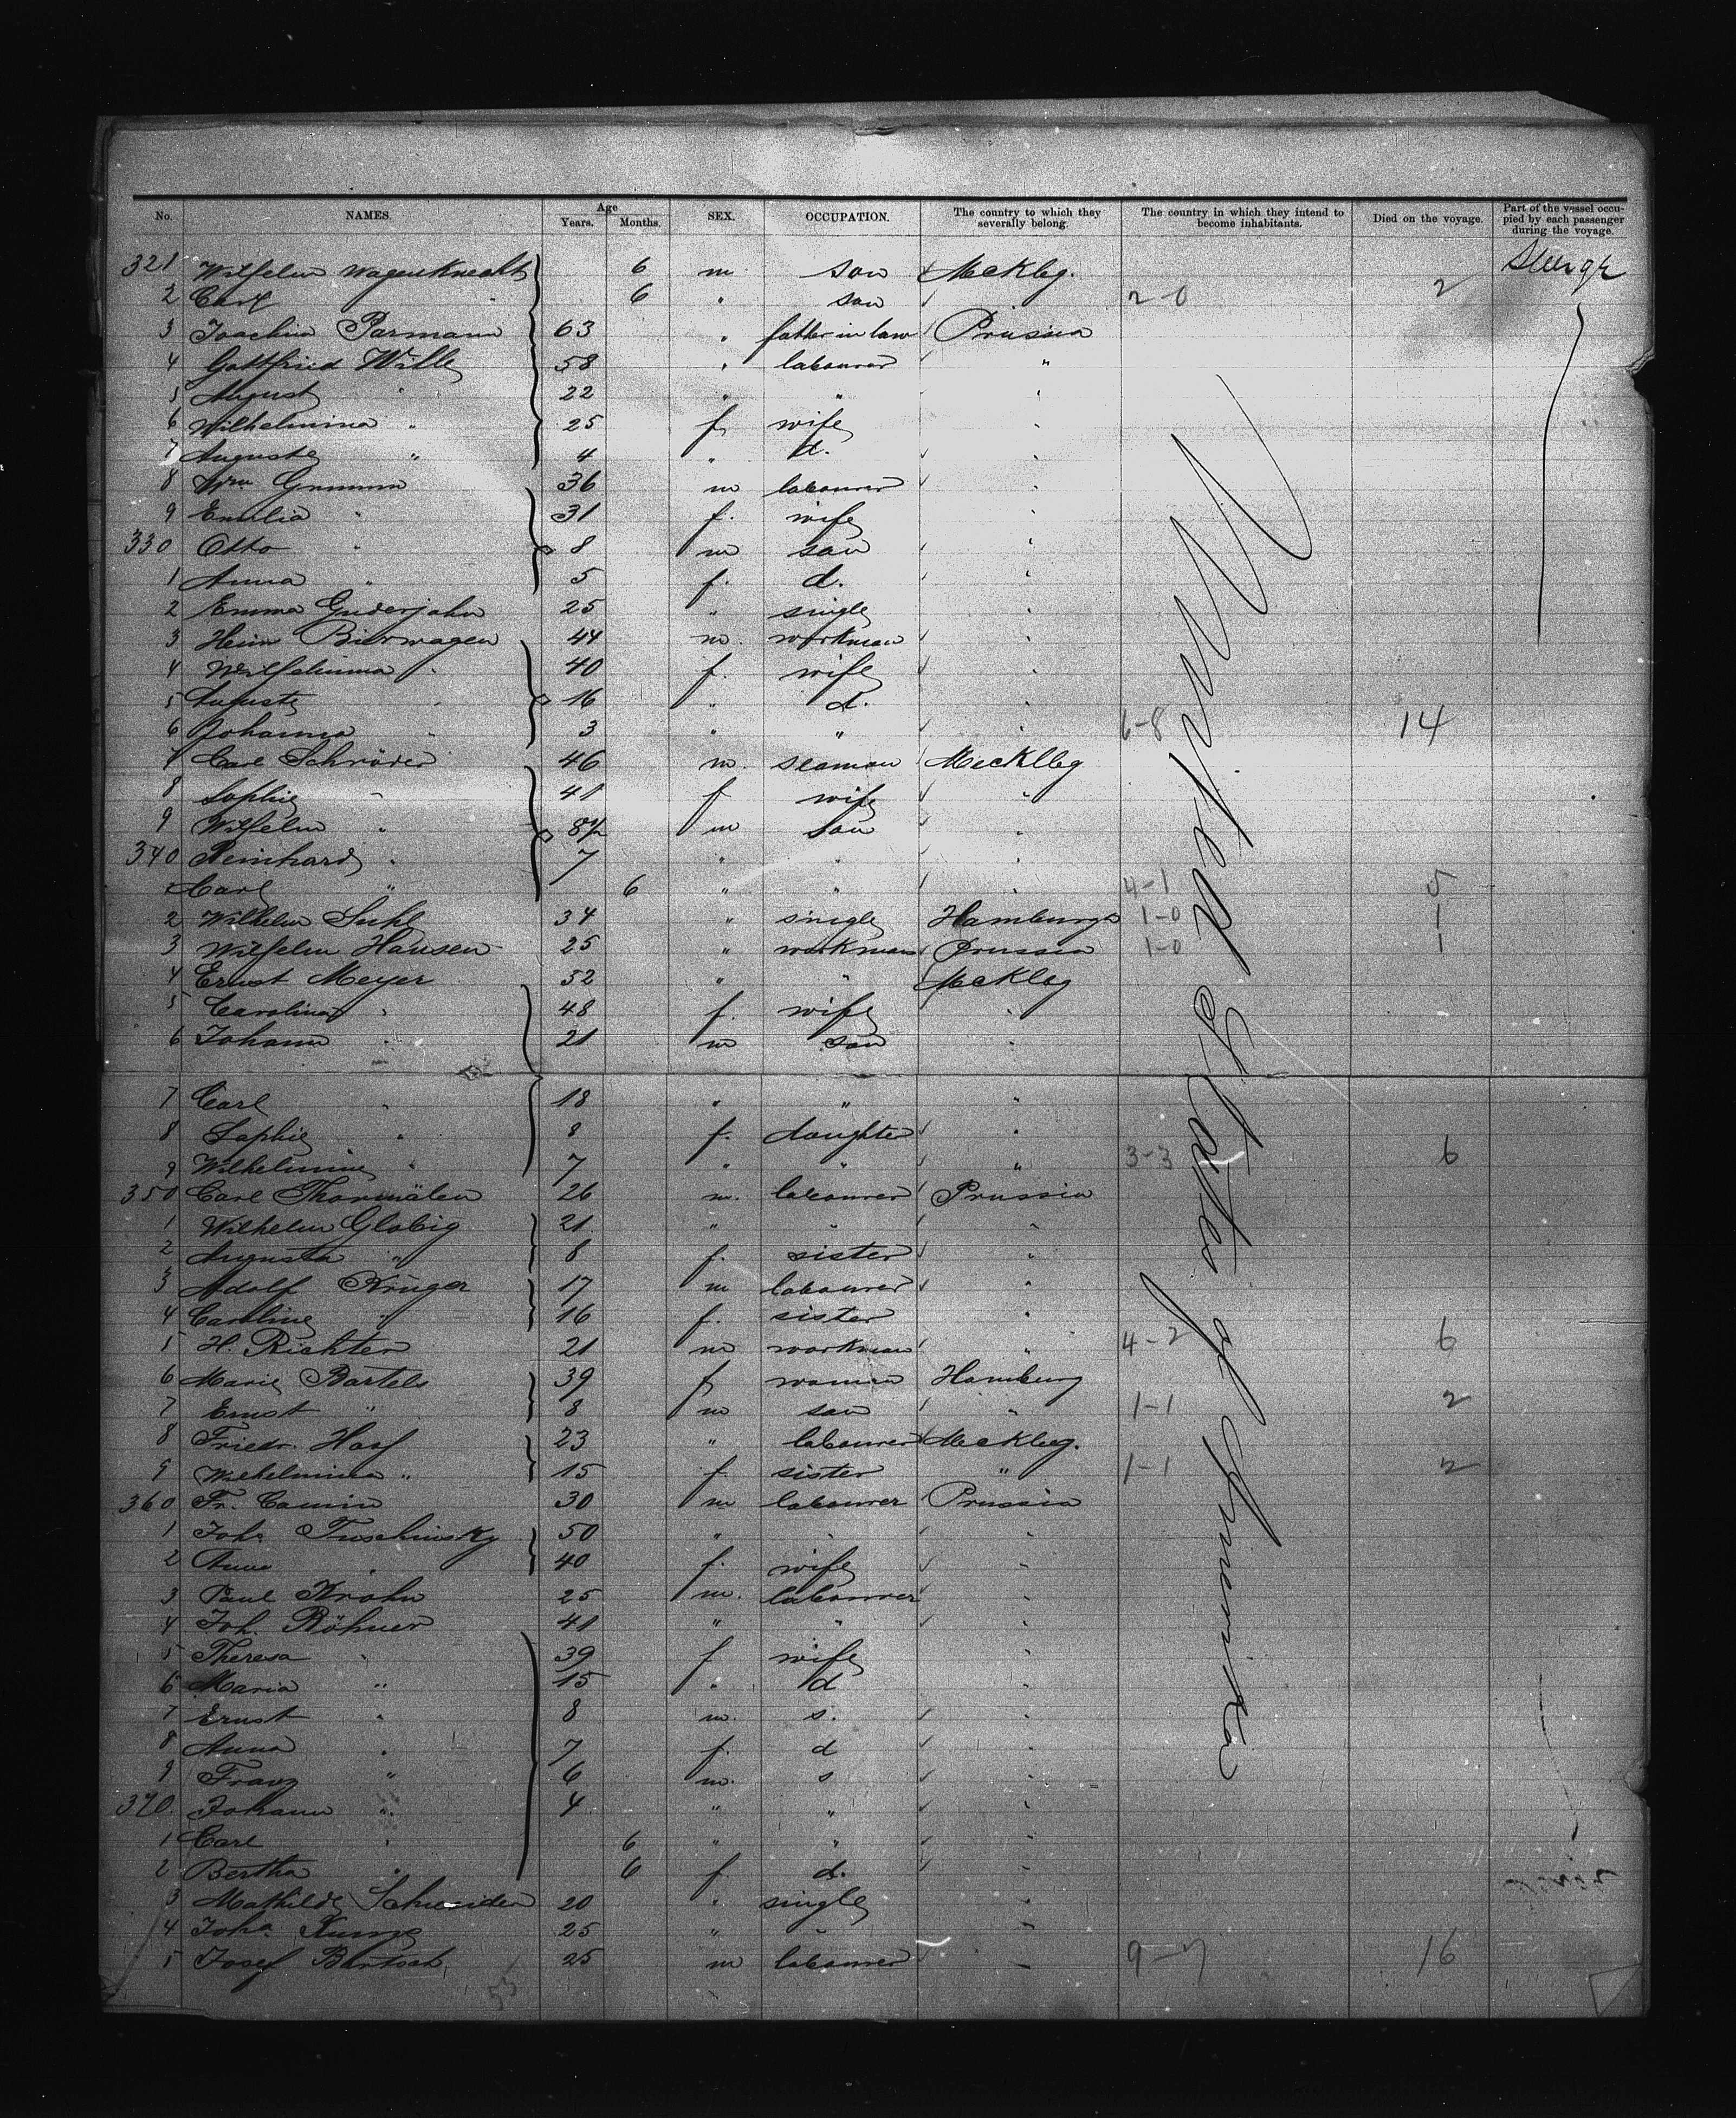 No. NAMES. Age Years. Months. SEX. OCCUPATION. The country to which they severally belong. The country in which they intend to become inhabitants. Died on the voyage. Part of the vessel occupied by each passenger during the voyage.
321 Wilhelm Wagenknecht 6 m. son Mecklbg. Steerage
2 Carl " 6 " son 2-0 2
3 Joachim Parmann 63 " father in law Prussia
4 Gottfried Wille 58 " labourer "
5 August " 22 " " "
6 Wilhelmina " 25 f. wife "
7 Auguste " 4 " d. "
8 Wm Grumm 36 m labourer "
9 Emilia " 31 f. wife "
330 Otto " 8 m son "
1 Anna " 5 f. d. "
2 Emma Guderjahn 25 " single "
3 Heinr Bierwagen 44 m. workman "
4 Wilhelmina " 40 f. wife "
5 Auguste " 16 " d. "
6 Johanna " 3 " " " 6-8 14
7 Carl Schröder 46 m. seaman Mecklbg
8 Sophie " 41 f wife "
9 Wilhelm " 8½ m son "
340 Reinhard " 7 " " "
Carl " 6 " " " 4-1 5
2 Wilhelm Suhl 34 " single Hamburg 1-0 1
3 Wilhelm Hansen 25 " workman Prussia 1-0 1
4 Ernst Meyer 52 " " Mecklbg
5 Carolina " 48 f. wife "
6 Johann " 21 m son "
7 Carl " 18 " " "
8 Sophie " 8 f. daughter "
9 Wilhelmine " 7 " " " 3-3 6
350 Carl Thormälen 26 m. labourer Prussia
1 Wilhelm Globig 21 " " "
2 Augusta " 8 f. sister "
3 Adolf Krüger 17 m labourer "
4 Caroline " 16 f. sister "
5 H. Richter 21 m workman " 4-2 6
6 Marie Bartels 39 f woman Hamburg
7 Ernst " 8 m son " 1-1 2
8 Friedr. Haaf 23 " labourer Mecklbg.
9 Wilhelmina " 15 f. sister " 1-1 2
360 Fr. Camin 30 m labourer Prussia
1 Joh. Tuschinsky 50 " " "
2 Anna " 40 f. wife "
3 Paul Krohn 25 m. labourer "
4 Joh. Röhner 41 " " "
5 Theresa " 39 f wife "
6 Maria " 15 " d "
7 Ernst " 8 m. s. "
8 Anna " 7 f. d "
9 Franz " 6 m. s "
370. Johann " 4 " " "
1 Carl " 6 " " "
2 Bertha " 6 f d. "
3 Mathilde Schneider 20 " single "
4 Joha Kunze 25 " " "
5 Josef Bartsch 25 m labourer " 9-7 16
United States of America